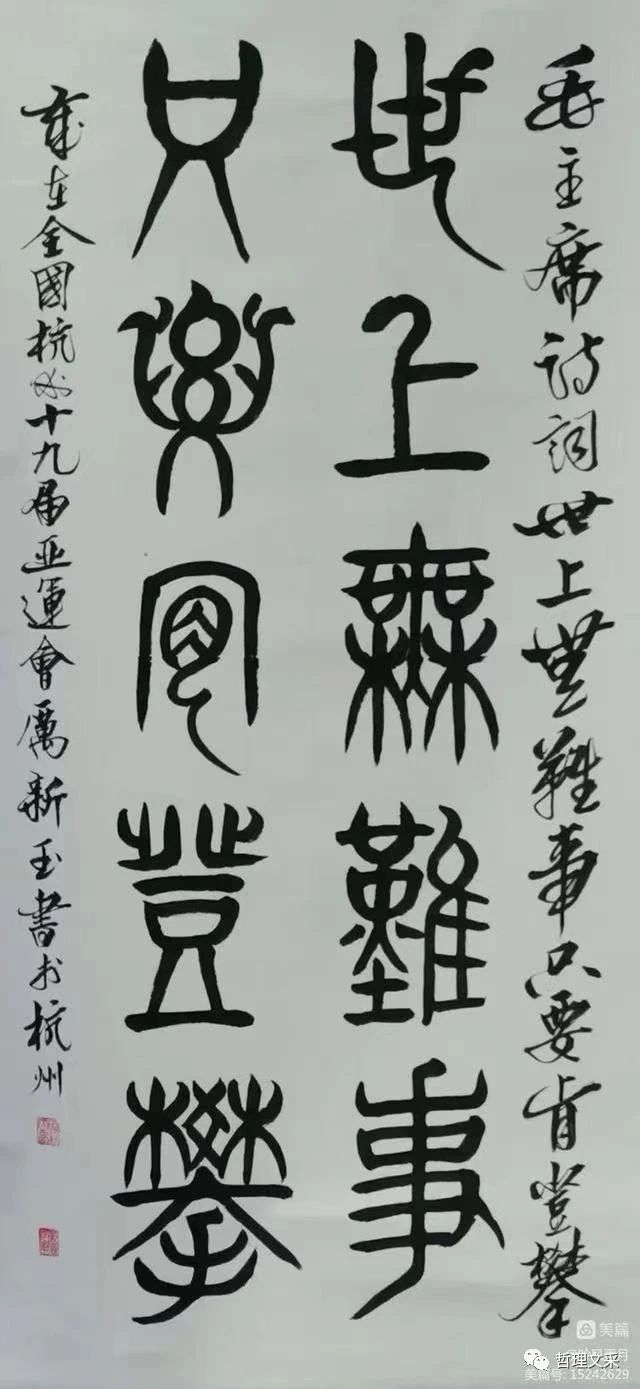 毛主席詩詞世上無難事只要肯登攀
世上無難事
只要肯登攀
歲在全國杭州十九届亚運會厲新玉書於杭州
美篇
哲理文采
美篇号: 15242629